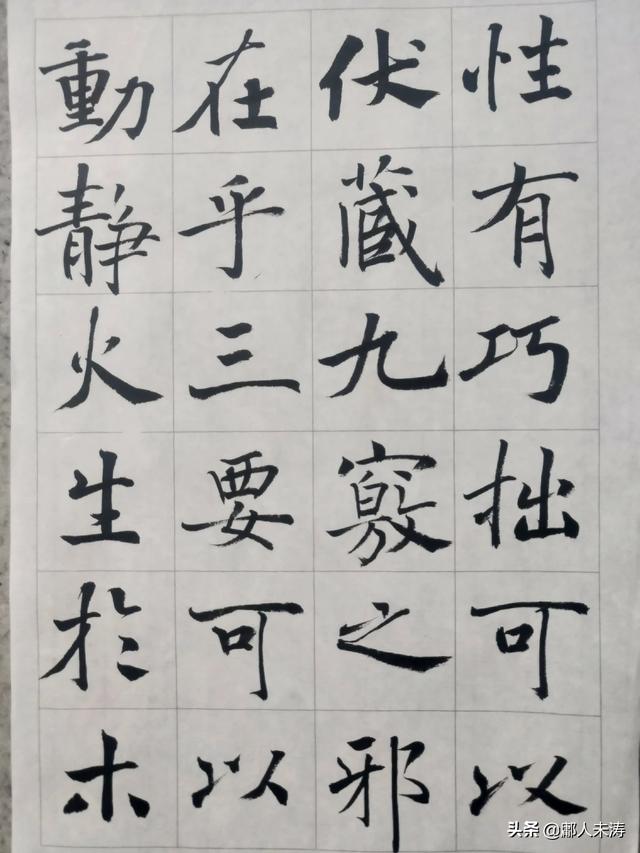 性有巧拙可以
伏藏九竅之邪
在乎三要可以
動靜火生於木
头条 @鄘人未涛